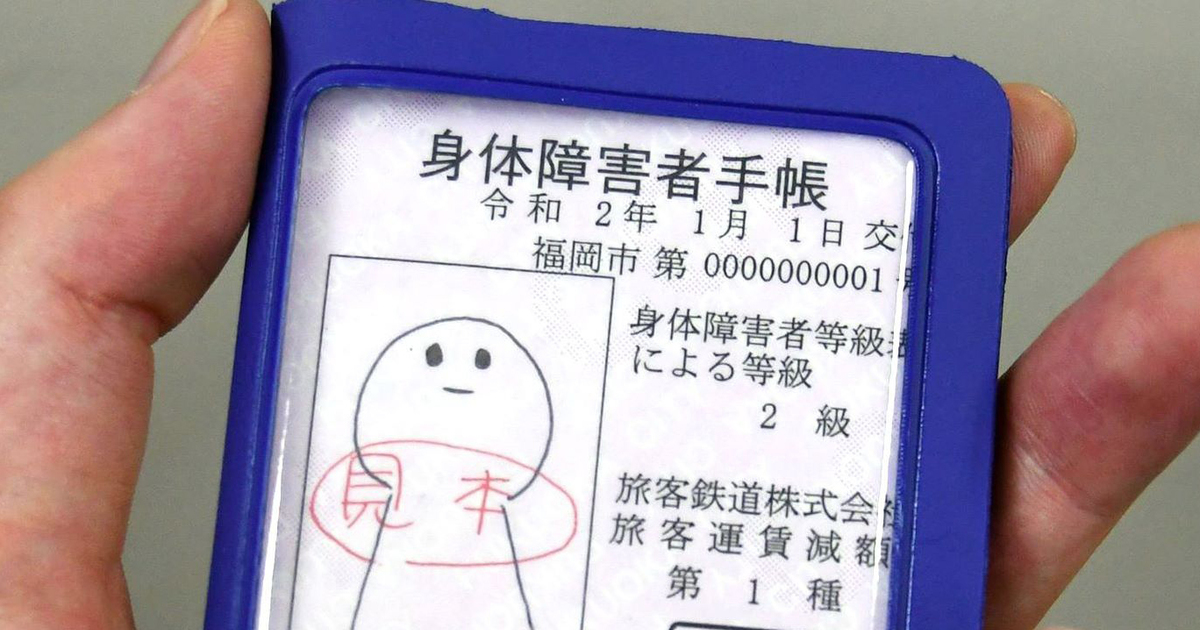 身体障害者手帳
令和 2年 1月 1日 交
福岡市 第 0000000001
身体障害者等級表
による等級
2 級
見本
旅客鉄道株式会社
旅客運賃減額
第 1 種